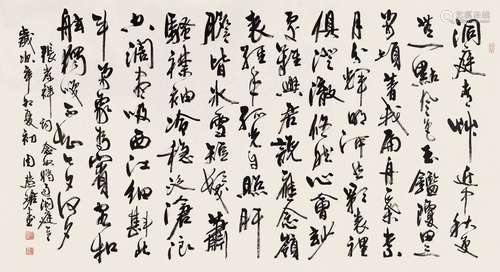 洞庭青艸近中秋更
無一點風色玉鑑瓊田三
萬頃着我扁舟一葉素
月分輝明河共影表裡
俱澄澈悠然心會妙
處難與君說應念嶺
表經年孤光自照肝
膽皆冰雪短髮蕭
騷襟袖冷穩泛滄浪
空闊盡吸西江細斟北
斗萬象為賓客扣
舷獨嘯不知今夕何夕
張孝祥詞念奴嬌過洞庭
歲次辛卯夏初周